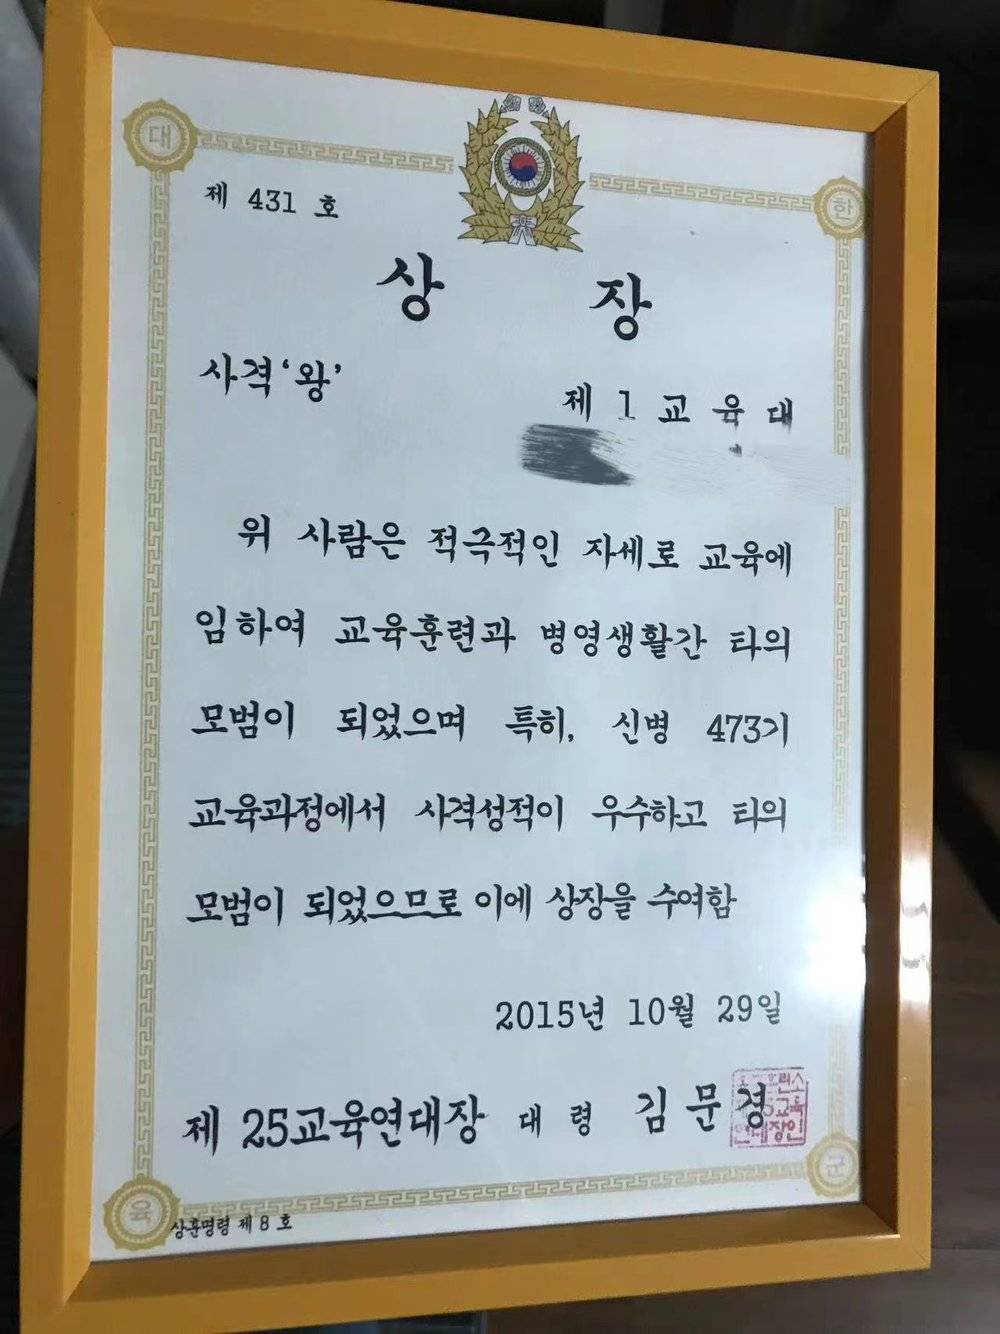 대
한
제 431 호
상 장
사격‘왕’
제 1 교 육 대
위 사람은 적극적인 자세로 교육에
임하여 교육훈련과 병영생활간 타의
모범이 되었으며 특히, 신병 473기
교육과정에서 사격성적이 우수하고 타의
모범이 되었으므로 이에 상장을 수여함
2015년 10월 29일
제 25교육연대장 대 령 김 문 경
육
군
상훈명령 제 8 호